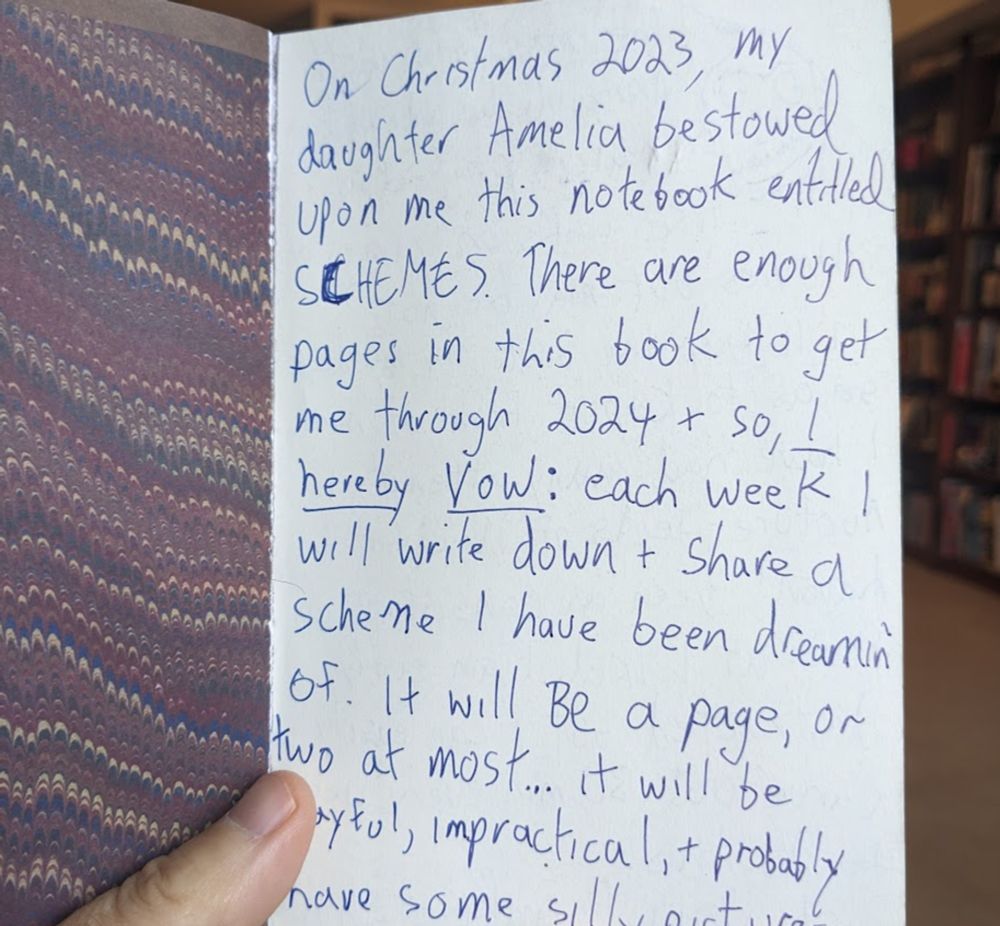 On Christmas 2023, my
daughter Amelia bestowed
upon me this notebook entitled
SCHEMES. There are enough
pages in this book to get
me through 2024 + so, I
hereby VOW: each week I
will write down + share a
scheme I have been dreamin'
of. It will Be a page, or
two at most... it will be
ayful, impractical, + probably
have some silly